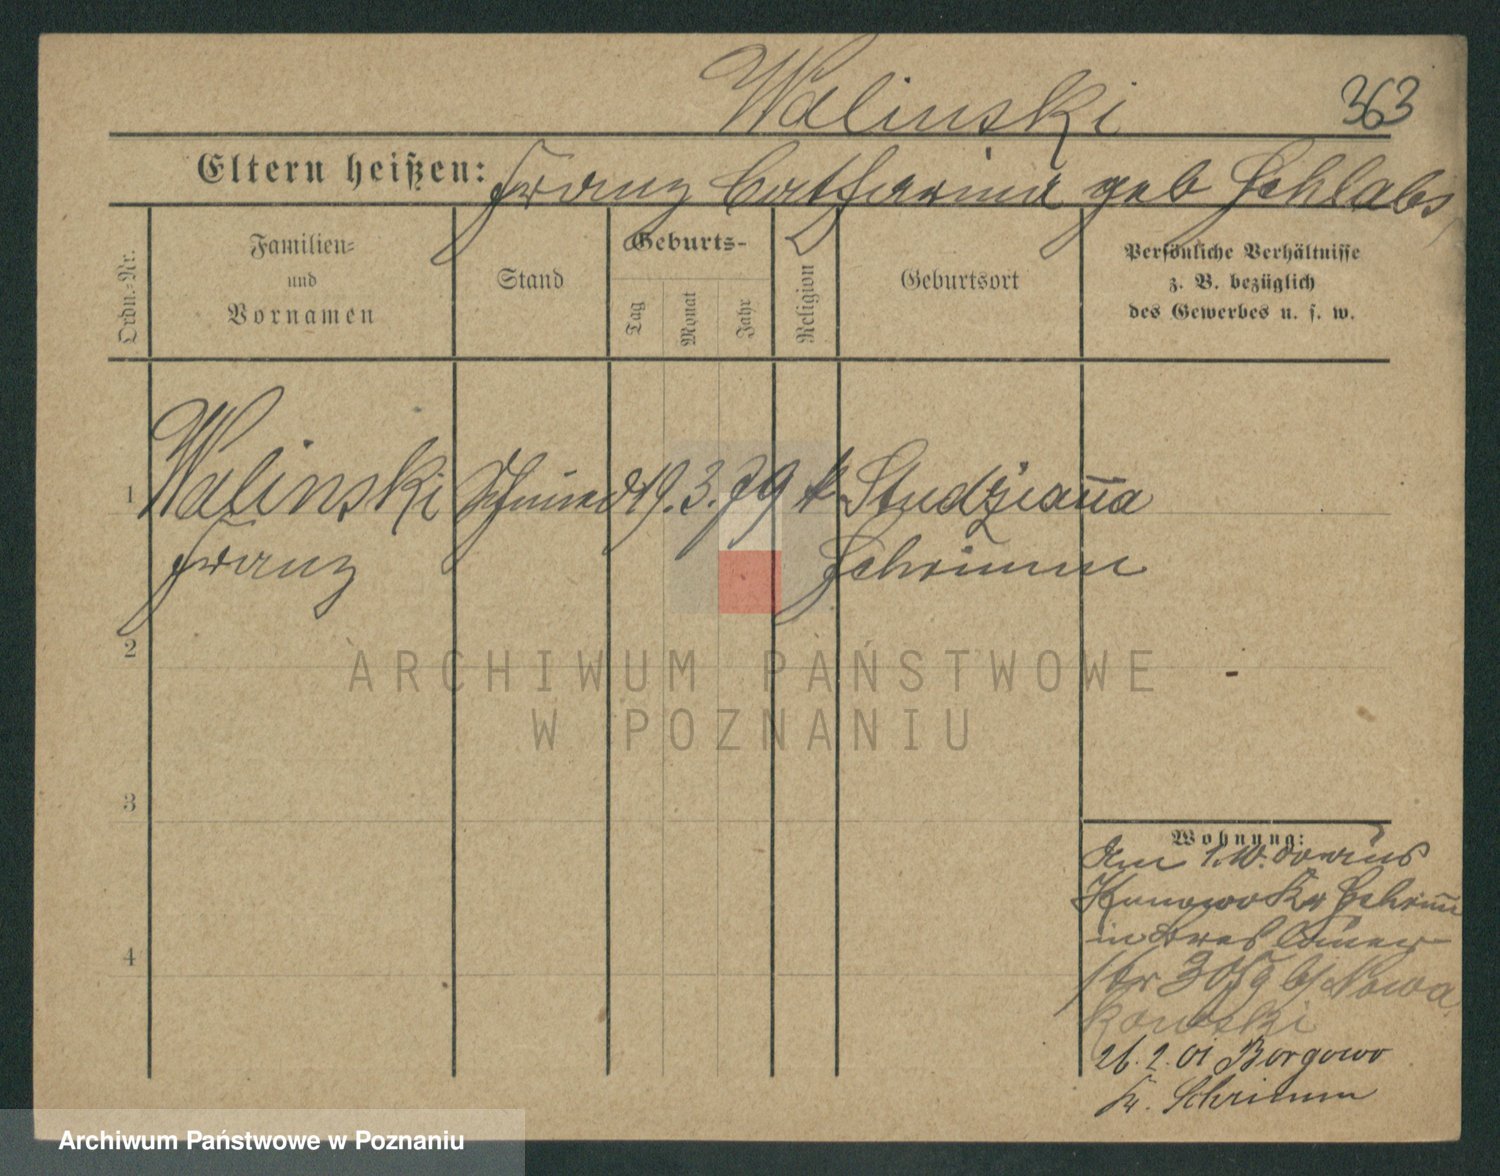 Walinski
363
Eltern heißen: Franz Catharina geb Schlabs
Ordn.-Nr.
Familien-
und
Vornamen
Stand
Geburts-
Tag
Monat
Jahr
Religion
Geburtsort
Persönliche Verhältnisse
z. B. bezüglich
des Gewerbes u. s. w.
1 Walinski Schmied 19. 3. 79 k Studzianna
Franz Schrimm
2
ARCHIWUM PAŃSTWOWE
W POZNANIU
3
Wohnung:
Am
Kr Schrimm
in
str 30 b/ Nowa
kowski
26. 2. 01 Borgowo
Kr. Schrimm
4
Archiwum Państwowe w Poznaniu